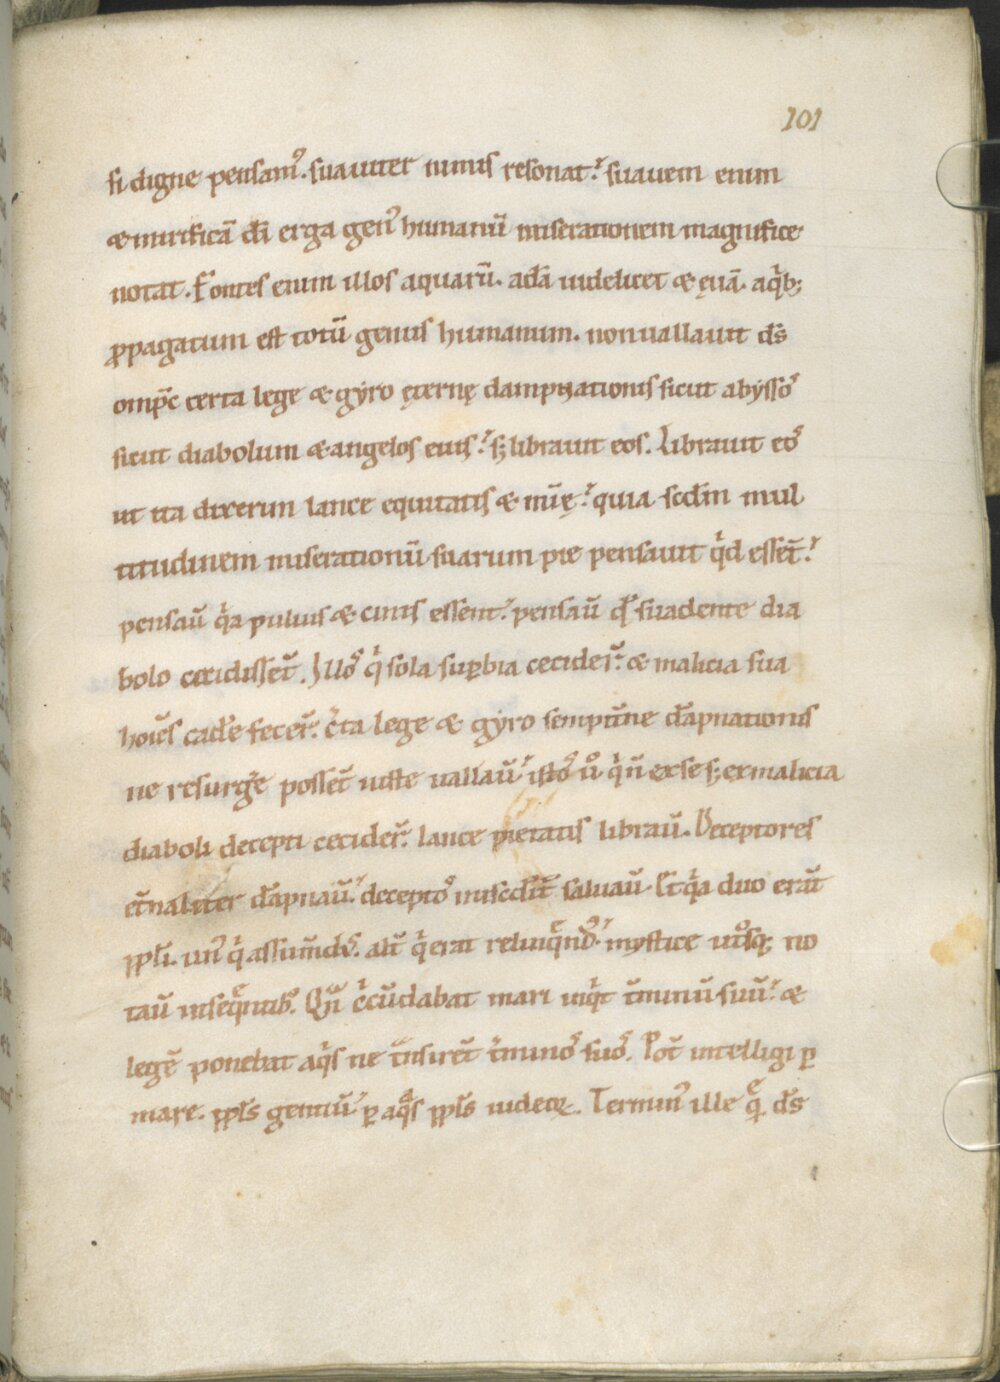 101
si digne pensam᷒. suauiter nimis resonat. suauem enim
& mirificā dī erga gen᷒ humanū miserationem magnifice
notat. Fontes enim illos aquarū. adā uidelicet & ęuā. a qͥb;
ꝓpagatum est totū genus humanum. non uallauit ds̄
omp̄c certa lege & gyro ęternę dampnationis sicut abysso᷒
sicut diabolum & angelos eius. s; librauit eos. Librauit eo᷒
ut ita dixerim lance equitatis & mīę. quia scdm̄ mul
titudinem miserationū suarum pie pensauit qͥd essēt.
pensaū qͥa puluis & cinis essent. pensaū qd̄ suadente dia
bolo cecidissēt. Illo᷒ qͥ sola suꝑbia cecider̄. & malicia sua
hoīes cad̄e fecer̄. c̄ta lege & gyro sempit̄ne dāpnationis
ne resurḡe possēt iuste uallaū. isto᷒ ůo qͥ n̄ ex se s; ex malicia
diaboli decepti cecider̄. lance pietatis libraū. Deceptores
et̄naliter dāpnaū. decepto᷒ misc̄dit̄ saluaū. Et qͥa duo erāt
ppl̄i. un᷒ qͥ assum̄d᷒. alī qͥ erat relinqͤnd᷒. mystice utͦsq; no
taū inseqͤntib᷒. Qn̄ cͥcūdabat mari inqͥt t̄minū suū. &
legē ponebat aqͥs ne tͣnsirēt t̄mino᷒ suo᷒. Pōt intelligi ꝑ
mare. ppl̄s gentiū. ꝑ aqͣs ppl̄s iudeoꝝ. Termin᷒ ille qͤ ds̄